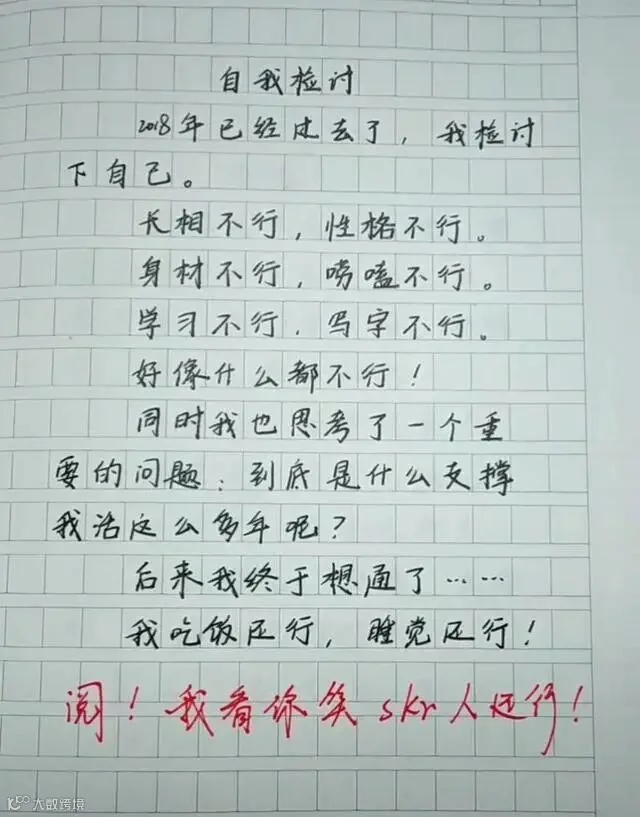 自我检讨
2018年已经过去了，我检讨
下自己。
长相不行，性格不行。
身材不行，唠嗑不行。
学习不行，写字不行。
好像什么都不行！
同时我也思考了一个重
要的问题：到底是什么支撑
我活这么多年呢？
后来我终于想通了……
我吃饭还行，睡觉还行！
阅！我看你笑skr人还行！
大数跨境